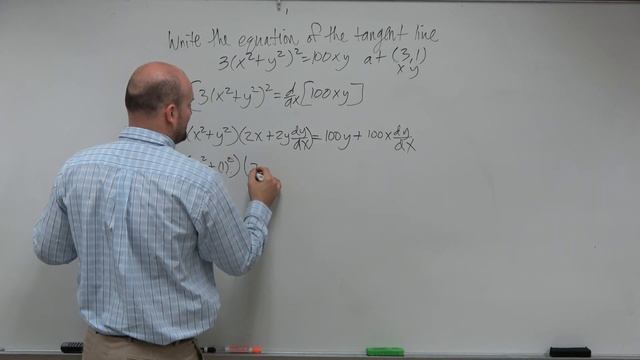 Write the equation of the tangent line
3(x²+y²)²=100xy at (3,1)
x y
[3(x²+y²)²=d/dx[100xy]
(x²+y²)(2x+2y dy/dx)=100y+100x dy/dx
²+(1)²)(